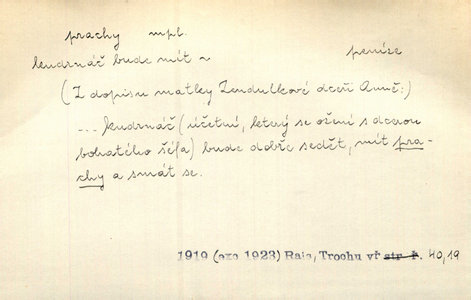 prachy mpl.
kudrnáč bude mít ~ peníze
(Z dopisu matky Zendulkové dceři Anně:)
... kudrnáč (účetní, který se ožení s dcerou
bohatého šéfa) bude dobře sedět, mít pra-
chy a smát se.
1919 (exc 1923) Rais, Trochu vř str. I. 40,19